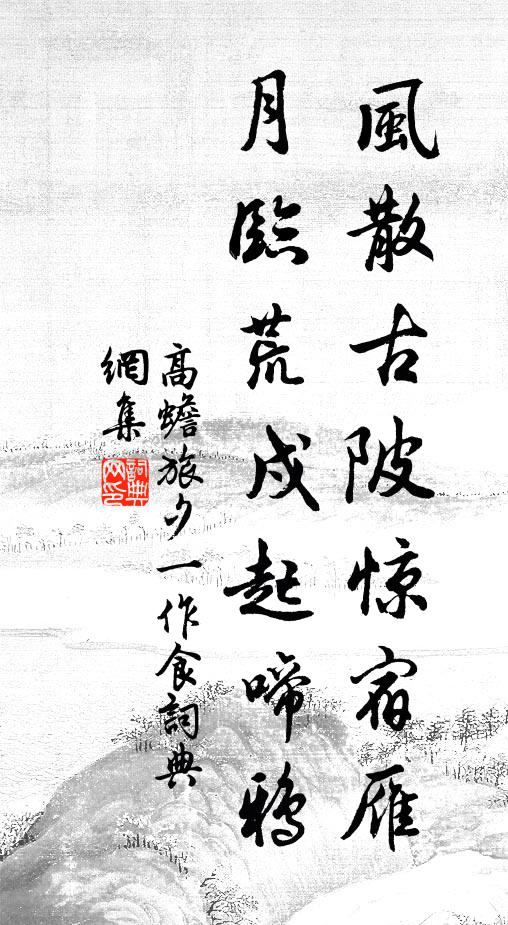 風散古陂惊宿雁
月臨荒戍起啼鴉
高蟾旅夕一作食詞典
網集
詞典
网印